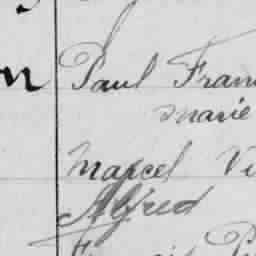 Paul Fran
Marie
Marcel Vi
Alfred